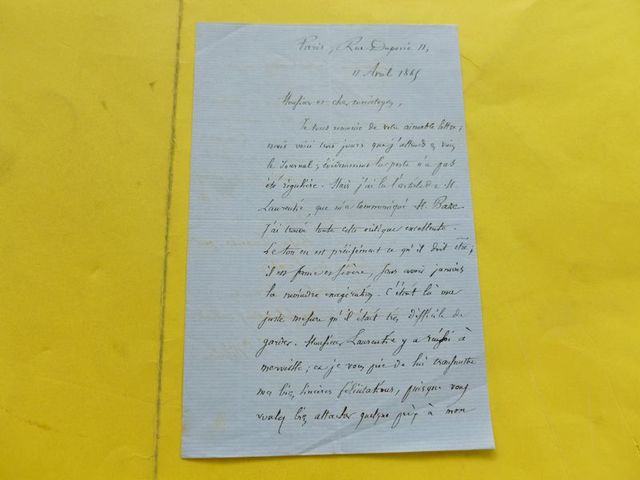 Paris, Rue Duperré 11,
11 Avril 1865
Monsieur et cher concitoyen,
Je vous remercie de votre aimable lettre;
mais voici trois jours que j'attends en vain
le Journal; évidemment la poste n'a pas
été régulière. Mais j'ai lu l'article de M.
Laurentie, que m'a communiqué M. Baze.
J'ai trouvé toute cette critique excellente.
Le ton en est précisément ce qu'il doit être;
il est ferme et sévère, sans avoir jamais
la moindre exagération. C'était là une
juste mesure qu'il était très difficile de
garder. Monsieur Laurentie y a réussi à
merveille; et je vous prie de lui transmettre
mes bien sincères félicitations, puisque vous
voulez bien attacher quelque prix à mon